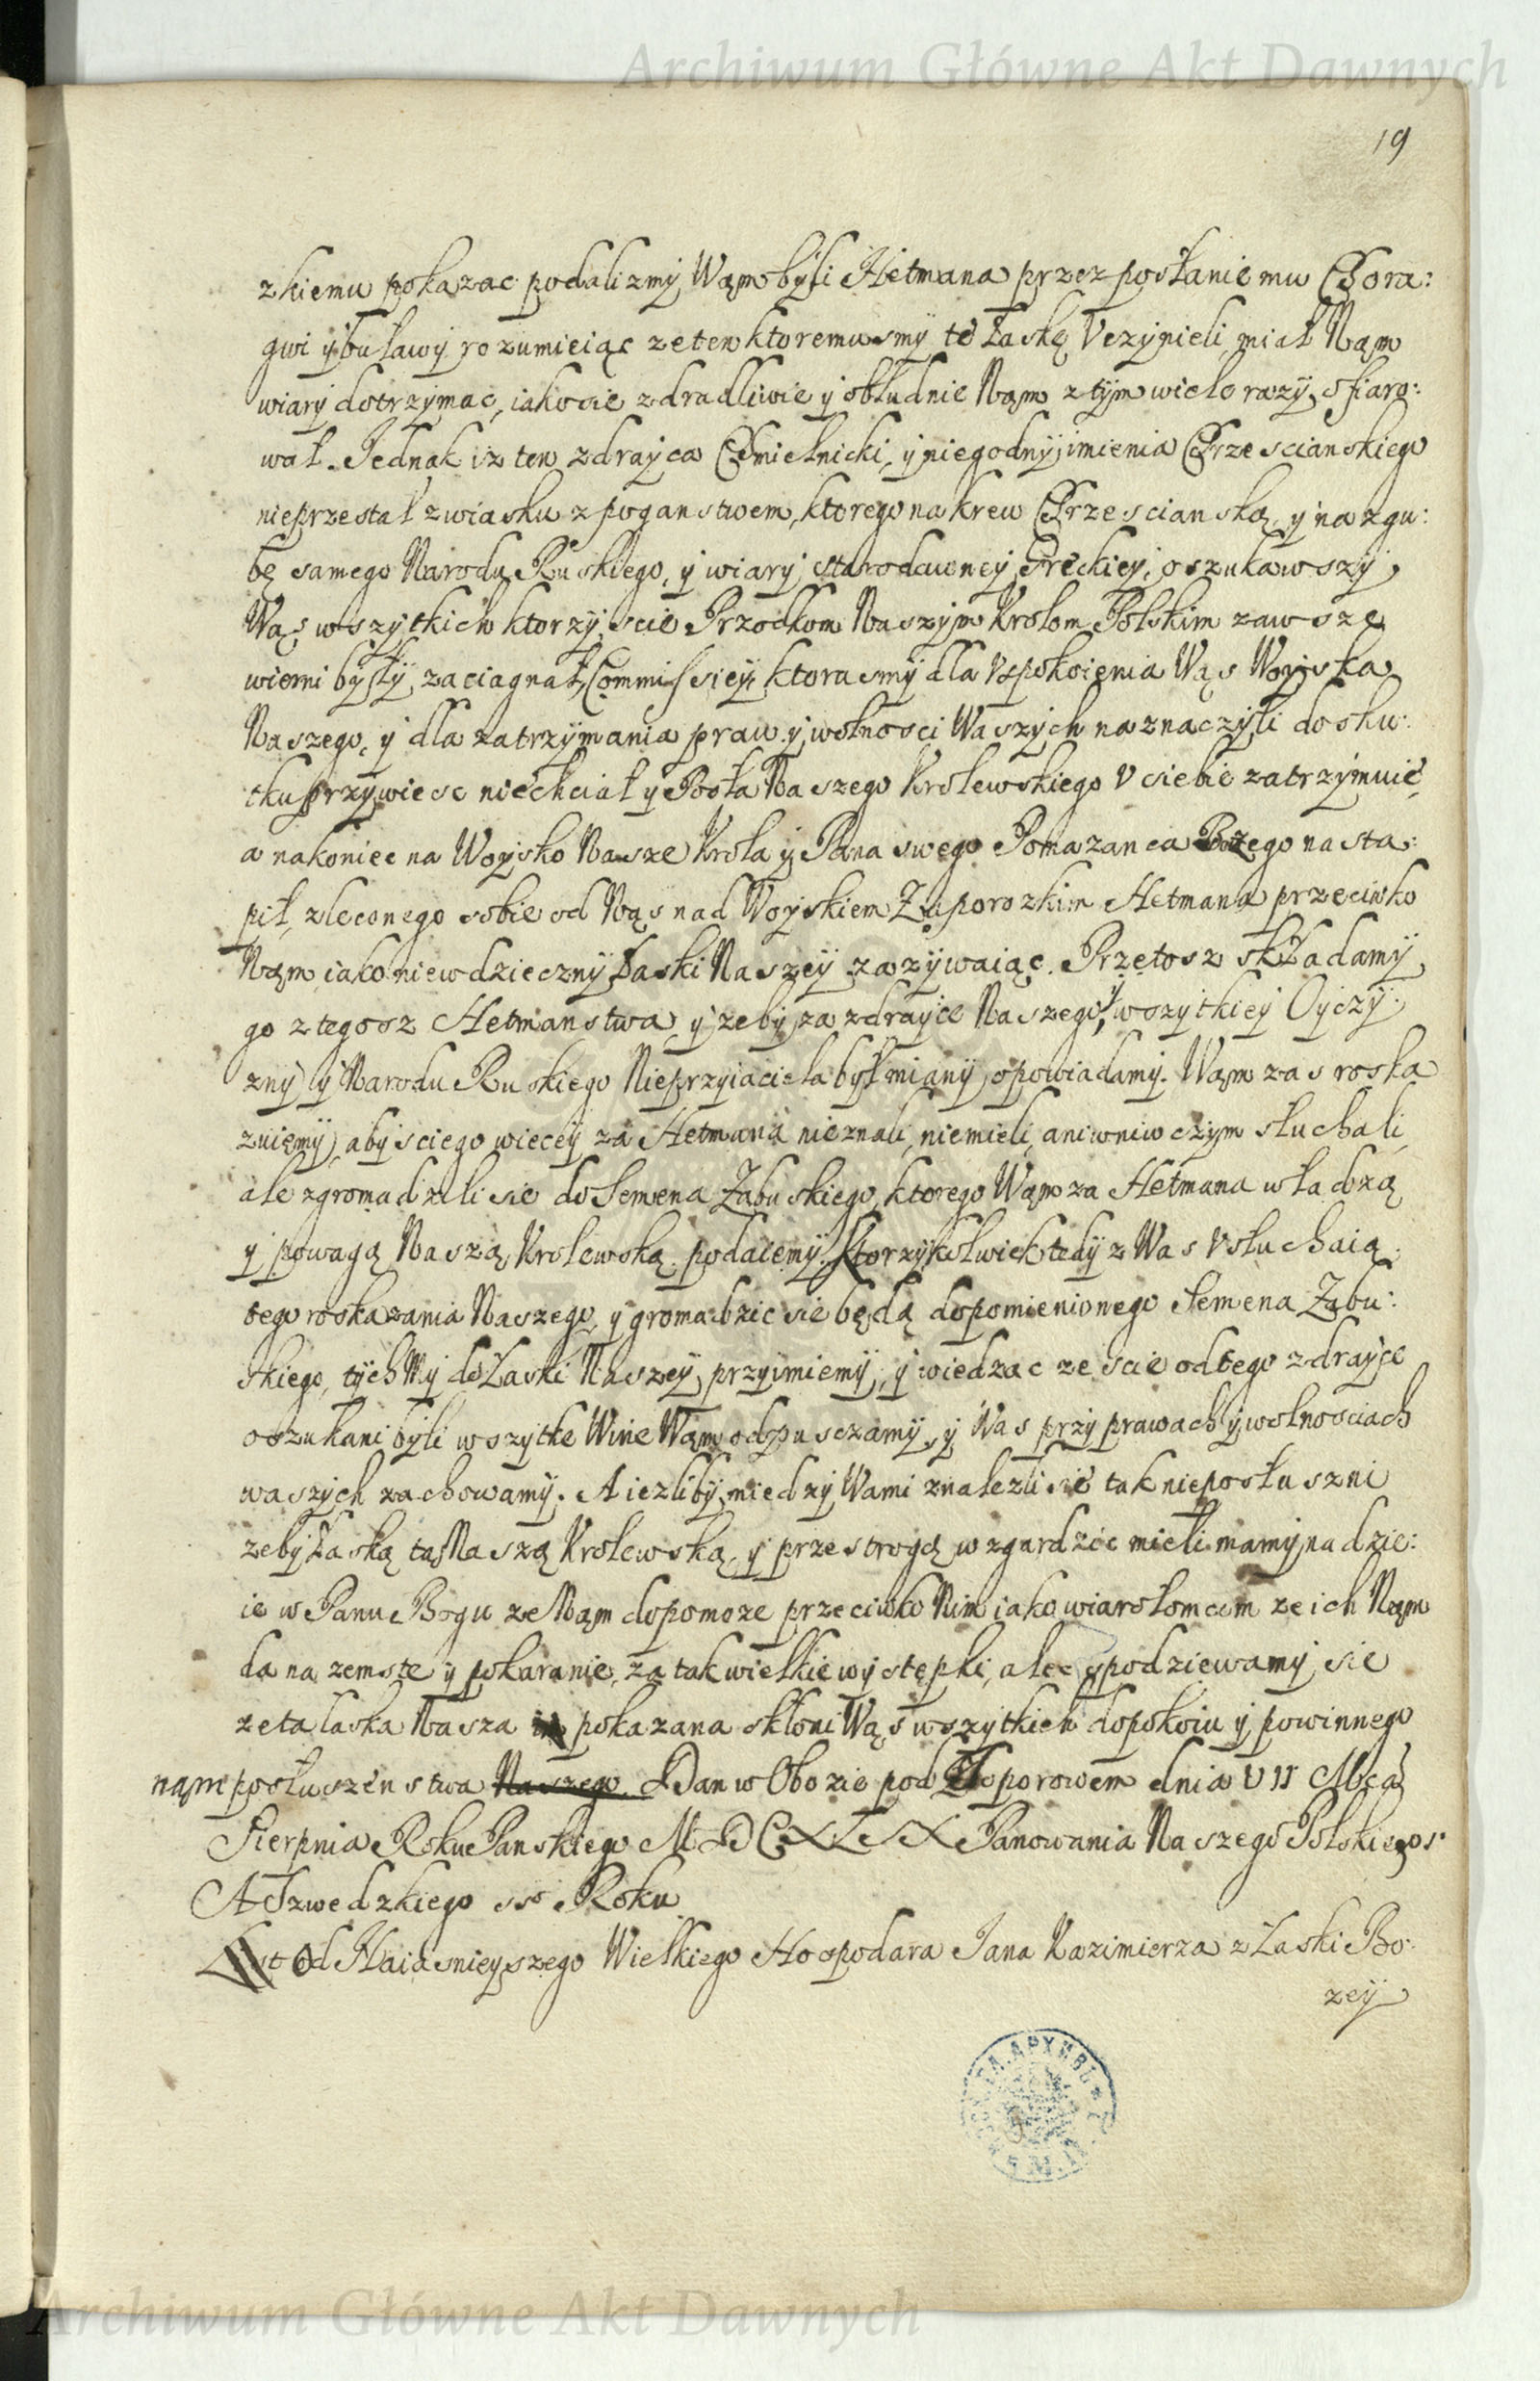 Archiwum Główne Akt Dawnych
19
zkiemu pokazac podalizmÿ Wąm bÿli Hetmana przez posłanie mu Chorą:
gwi ÿ buławÿ rozumieiąc ze ten ktoremusmÿ tė Łaskę Vczÿnieli, miał Nąm
wiarÿ dotrzÿmac, iakosie zdradliwie ÿ obłudnie Nąm z tÿm wielo razÿ ofiaro:
wał. Jednak iz ten zdraÿca Chmielnicki, ÿ niegodnÿ imienia Chrzescianskiego
nieprzestał zwiasku z poganstwem, ktorego na krew Chrzescianską, ÿ na zgu:
bę samego Narodu Ruskiego, ÿ wiarÿ starodawney Greckieÿ, oszukawszÿ
Wąs wszÿtkich ktorzÿ scie Przodkom Naszÿm Krolom Polskim zawsze
wierni bÿłÿ, zaciagnął, Commissieÿ, ktorasmÿ dla Vspokoienia Wąs Woÿska
Naszego, ÿ dla zatrzÿmania praw ÿ wolnosci Waszÿch naznaczÿli do sku:
tku przÿwiesc niechciał ÿ Posła Naszego Krolewskiego V siebie zatrzÿmuie,
a nakoniec na Woÿsko Nasze Krola ÿ Pana swego Pomazanca Bozego nasta:
pił, zleconego sobie od Nąs nad Woÿskiem Zaporozkim Hetmana przeciwko
Nąm iako niewdziecznÿ Łaski Naszeÿ zazÿwaiąc. Przetosz składamÿ
go z tegosz Hetmanstwa, ÿ zebÿ za zdraÿce Naszego, ÿ wszÿtkieÿ Oÿczÿ:
znÿ ÿ Narodu Ruskiego Nieprzÿiaciela bÿł mianÿ, opowiadamÿ. Wąm zas roska
zuiemÿ, abÿsciego wieceÿ za Hetmana nieznali, niemieli, aniwniwczÿm słuchali,
ale zgromadzili sie do Semena Zabuskiego, ktorego Wąm za Hetmana władzą
ÿ powagą Naszą Krolewską podaiemÿ. Ktorzÿkolwiek tedÿ z Was Vsłuchaią
tego roskazania Naszego, ÿ gromadzic sie będą dopomienionego Semena Zabu:
skiego, tÿch Mÿ do Łaski Naszeÿ przÿimiemÿ, ÿ wiedząc ze scie od tego zdraÿce
oszukani bÿli wszÿtke Wine Wąm odpusczamÿ, ÿ Was przÿ prawach ÿ wolnosciach
waszÿch zachowamÿ. A iezlibÿ miedzÿ Wami znalezli sie tak nieposłuszni
zebÿ Łaską tą Naszą Krolewską, ÿ przestrogą wzgardzic mieli mamÿ nadzie:
ie w Panu Bogu ze Nąm dopomoze przeciwko Nim iako wiarołomcom ze ich Nąm
da na zemste ÿ pokaranie, za tak wielkie wÿstępki, ale spodziewamÿ sie
ze ta laska Nasza pokazana skłoni Wąs wszÿtkich dopokoiu ÿ powinnego
nąm posłuszenstwa Naszego. Dan w Obozie pod Toporowem dnia VII Mcą
Sierpnia Roku Panskiego MDCXLIX Panowania Naszego Polskiego 1.
A Szwedzkiego 1o Roku
List od Naiasnieÿszego Wielkiego Hospodara Jana Kazimierza z Łaski Bo:
zeÿ
Archiwum Główne Akt Dawnych